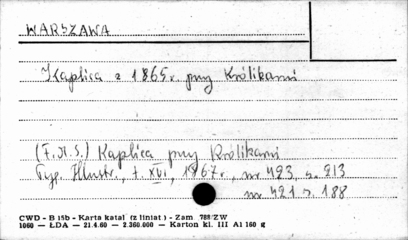 WARSZAWA
Kaplica z 1865 r. przy Królikarni
(F.M.S.) Kaplica przy Królikarni
Tyg. Illustr., t. XVI, 1867 r., nr 423, s. 213
nr 421 s. 188
CWD - B 15b - Karta katal (z liniat) - Zam 788/ZW
1060 — ŁDA — 21.4.60 — 2.360.000 — Karton kl. III A1 160 g